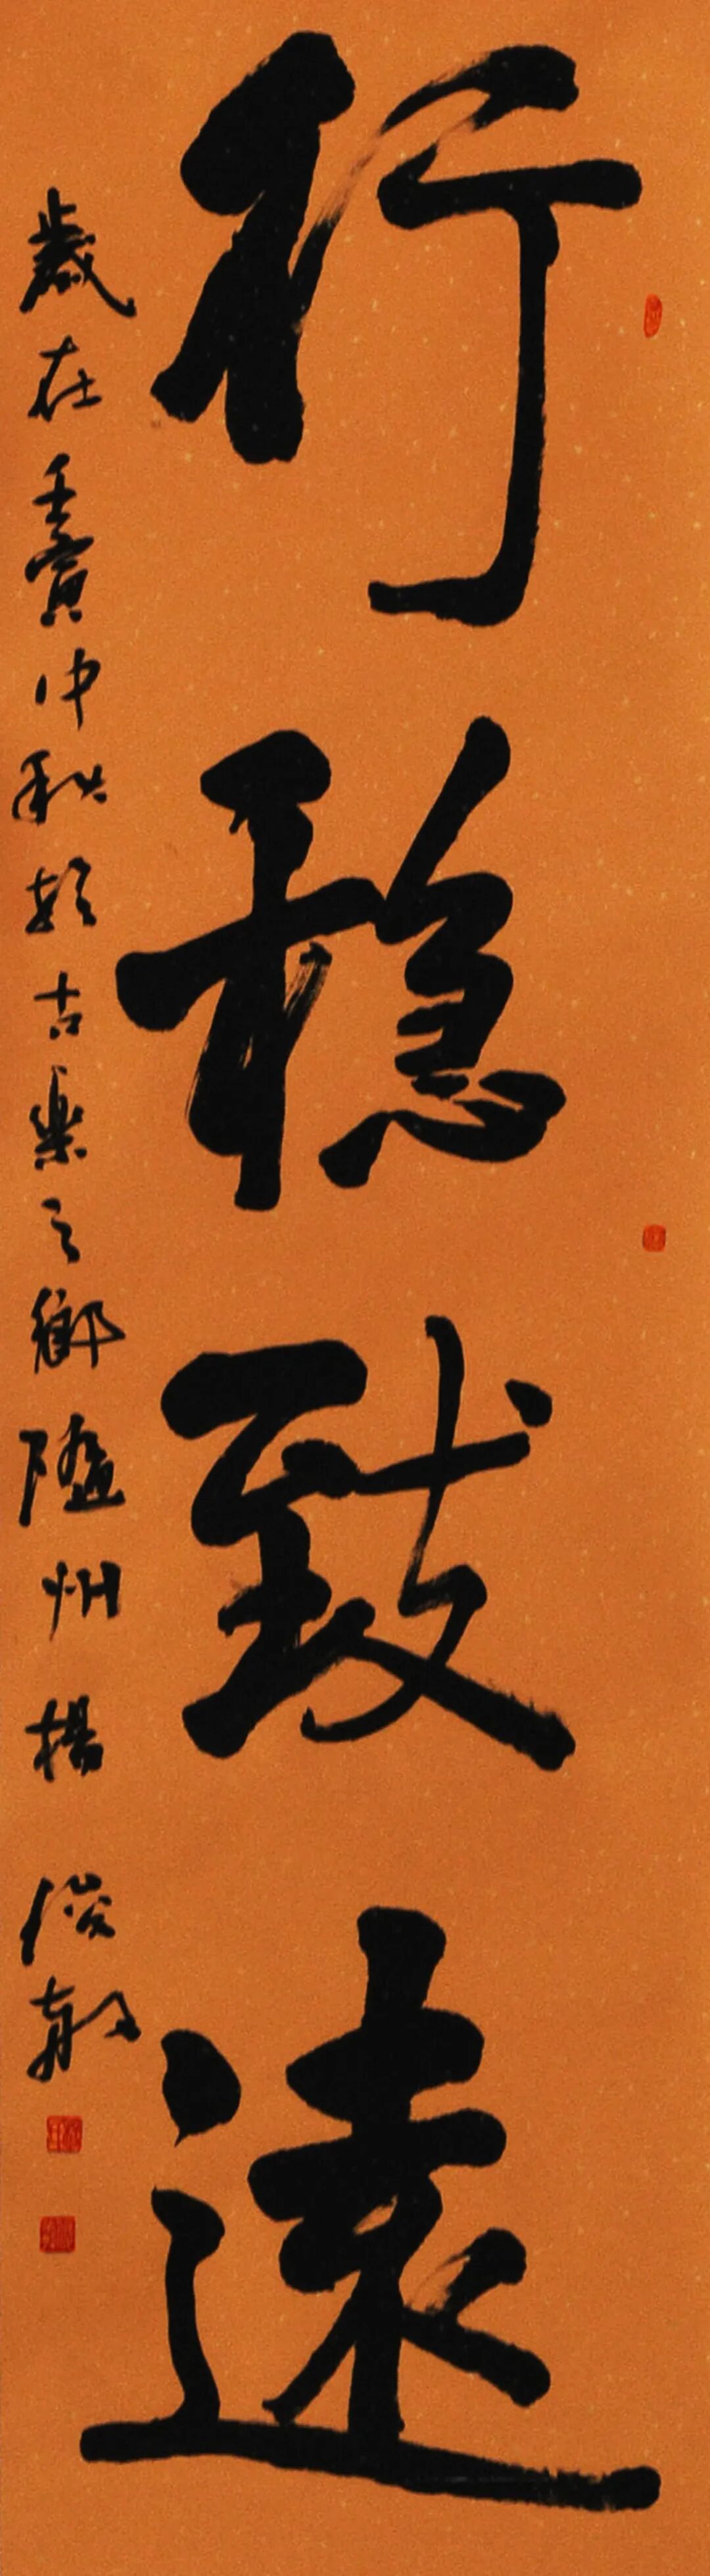 行稳致遠
歲在壬寅仲秋於古樂之鄉隨州楊俊朝